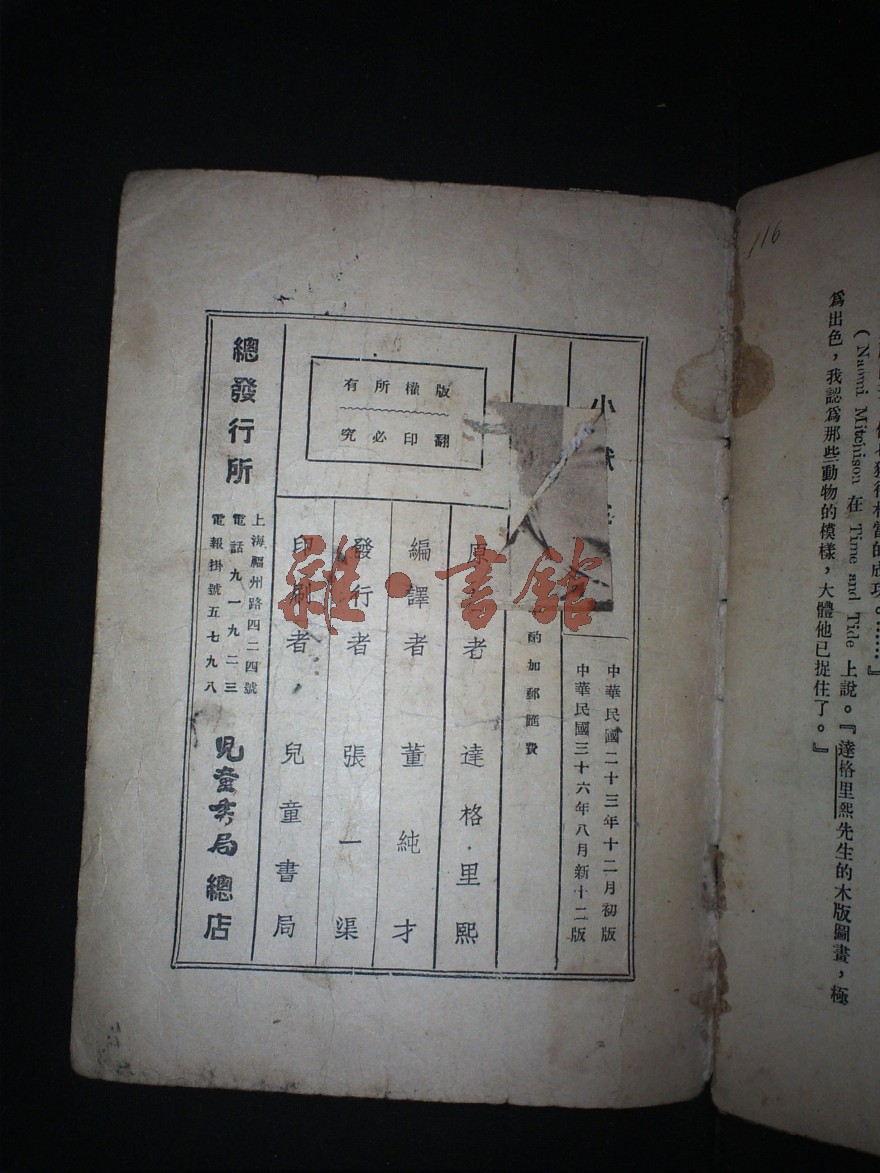 116
(Naomi Mitchison 在 Time and Tide 上說。『達格里熙先生的木版圖畫，極
爲出色，我認爲那些動物的模樣，大體他已捉住了。』
小
中華民國二十三年十二月初版
中華民國三十六年八月新十二版
酌加郵匯費
版權所有
翻印必究
原 者 達格·里熙
編譯者 董純才
發行者 張一渠
印刷者 兒童書局
總發行所
上海福州路四二四號
電話九一九二三
電報掛號五七九八
兒童書局總店
雜·書館